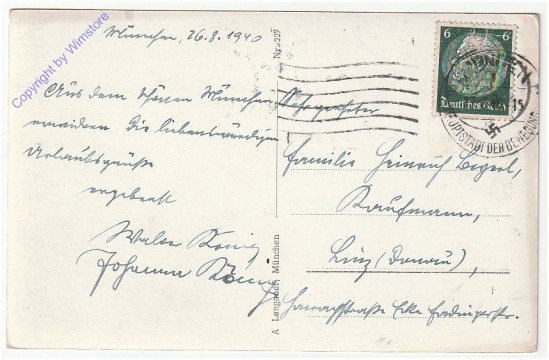 Copyright by Wimstore
München, 26.8.1940
Aus dem schönen München
erwidern die liebenswürdigen
Urlaubsgrüße
ergebenst
Walter König,
Johanna König
Nr. 227
A Lengauer, München
6 6
Deutsches Reich
MÜNCHEN
HAUPTSTADT DER BEWEGUNG
Familie Heinrich
Kaufmann,
Linz (Donau),
Harrachstraße Ecke